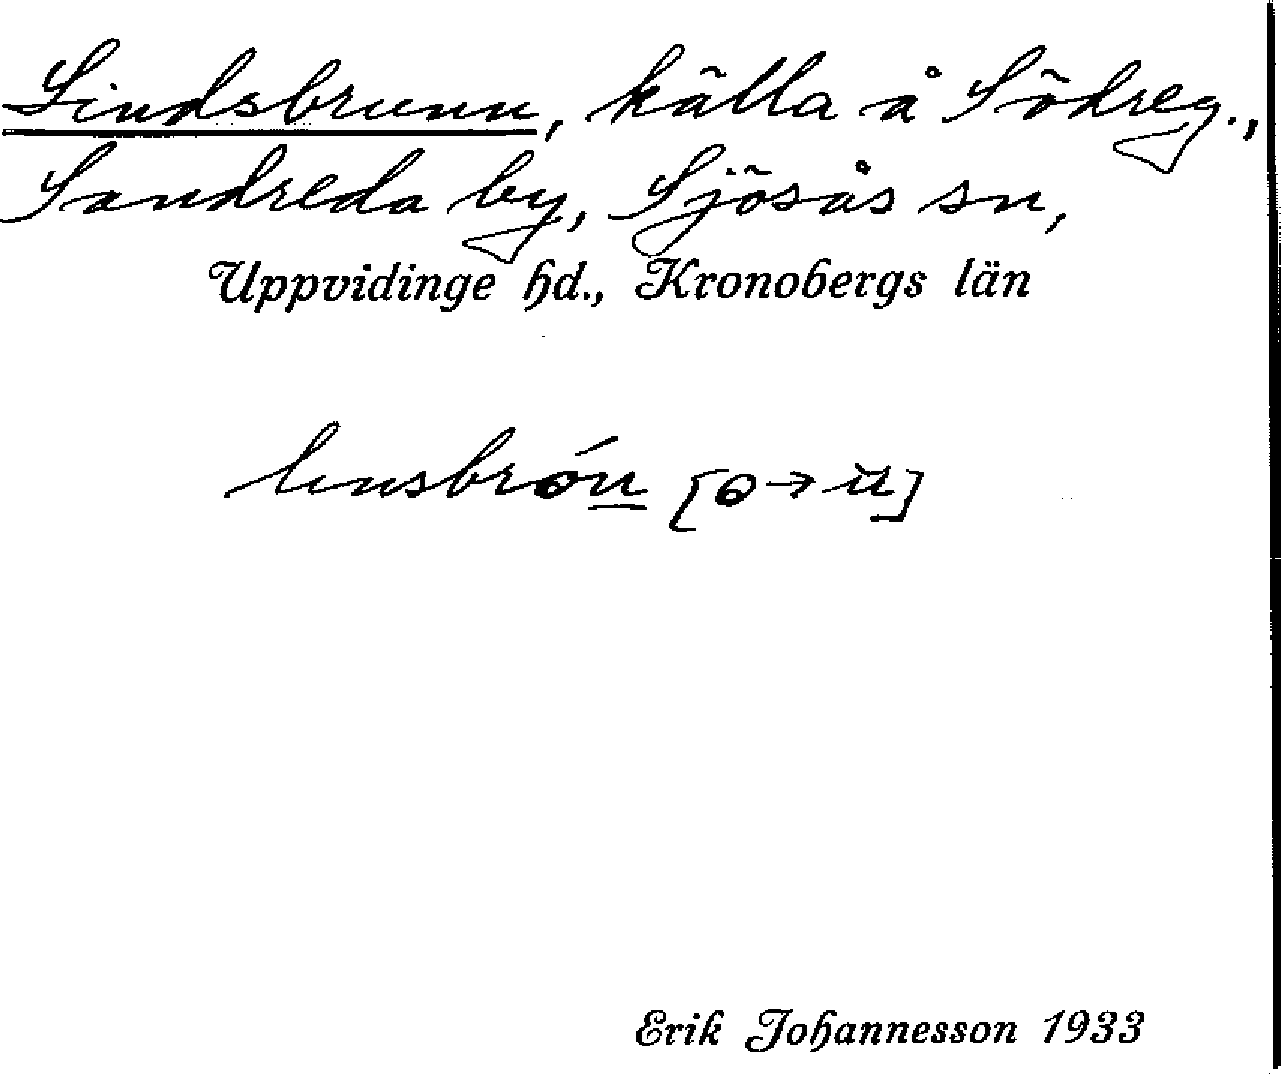 Lindsbrunn, källa å Södreg.,
Sandreda by, Sjösås sn,
Uppvidinge hd., Kronobergs län
lınsbrón [o→ü]
Erik Johannesson 1933